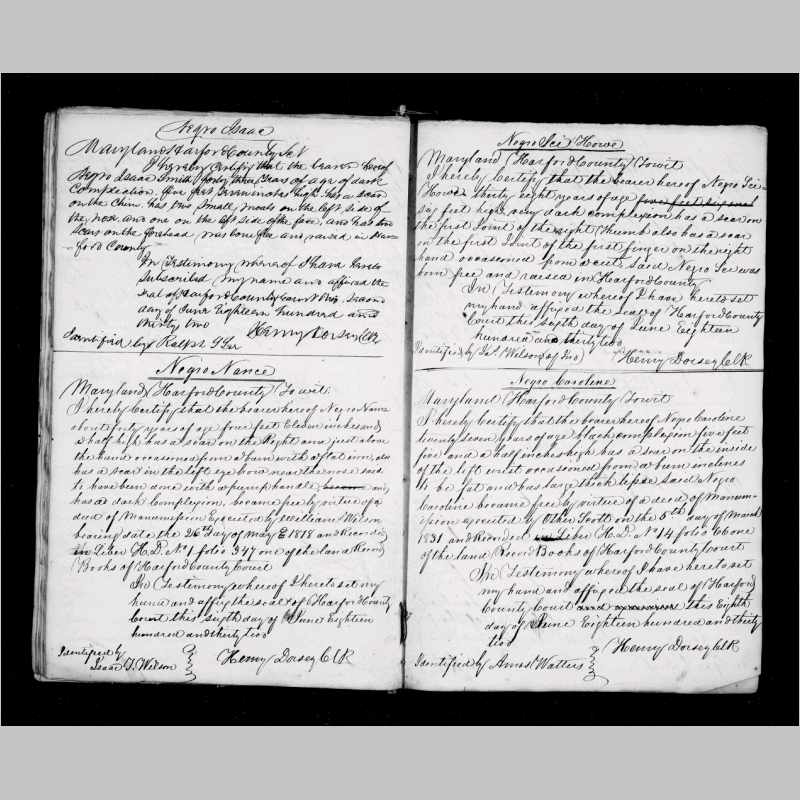 Negro Isaac
Maryland Harford County Sct
I hereby Certify that the bearer hereof
Negro Isaac Smith forty three Years of age of dark
Complection five feet inches high has a scar
on the Chin has two Small moals on the left side of
the nose and one on the left side of the face, and has two
Scars on the forehead was born free and raised in Har-
ford County
In Testimony whereof I have hereto
Subscribed my name and affixed the
Seal of Harford County Court this Second
day of June Eighteen hundred and
thirty two
Identified by Ralph Henry Dorsey Clk
Negro Nance
Maryland Harford County Towit
I hereby Certify that the bearer hereof Negro Nance
about fifty years of age four feet Eleven inches and
a half high has a scar on the Right arm just above
the hand occasioned from a burn with a flat iron, also
has a scar in the left eye brow near the nose said
to have been done with a pump handle and
has a dark Complexion, became free by virtue of a
deed of Manumission Executed by William Wilson
bearing date the 26th day of May 1818 and Recorded
in Liber H.D. No 1 folio 347 one of the land Record
Books of Harford County Court
In Testimony whereof I hereto set my
hand and affix the seal of Harford County
Court this sixth day of June Eighteen
hundred and thirty two
Identified by
Isaac Wilson Henry Dorsey Clk
Negro Howe
Maryland Harford County Towit
I hereby Certify that the bearer hereof Negro
Howe thirty eight years of age five feet
six feet high very dark complexion has a scar on
the first Joint of the right Thumb also has a scar
on the first Joint of the first finger on the right
hand occasioned from a cut, said Negro was
born free and raised in Harford County
In Testimony whereof I have hereto set
my hand affixed the seal of Harford County
Court this sixth day of June Eighteen
hundred and thirty two
Identified by Jas. Wilson (of Jno) Henry Dorsey Clk
Negro Caroline
Maryland Harford County Towit
I hereby Certify that the bearer hereof Negro Caroline
twenty seven years of age black complexion five feet
five and a half inches high has a scar on the inside
of the left wrist occasioned from a burn inclines
to be fat and has large thick lips said Negro
Caroline became free by virtue of a deed of Manum-
ission executed by Otho Scott on the 5th day of March
1831 and Recorded in Liber H.D. No 14 folio 66 one
of the land Record Books of Harford County Court
In Testimony whereof I have hereto set
my hand and affix on the seal of Harford
County Court and this Eighth
day of June Eighteen hundred and thirty
two
Henry Dorsey Clk
Identified by Amos Watters